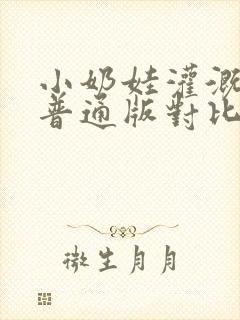 小奶娃灌溉
普通版對比
微生月月